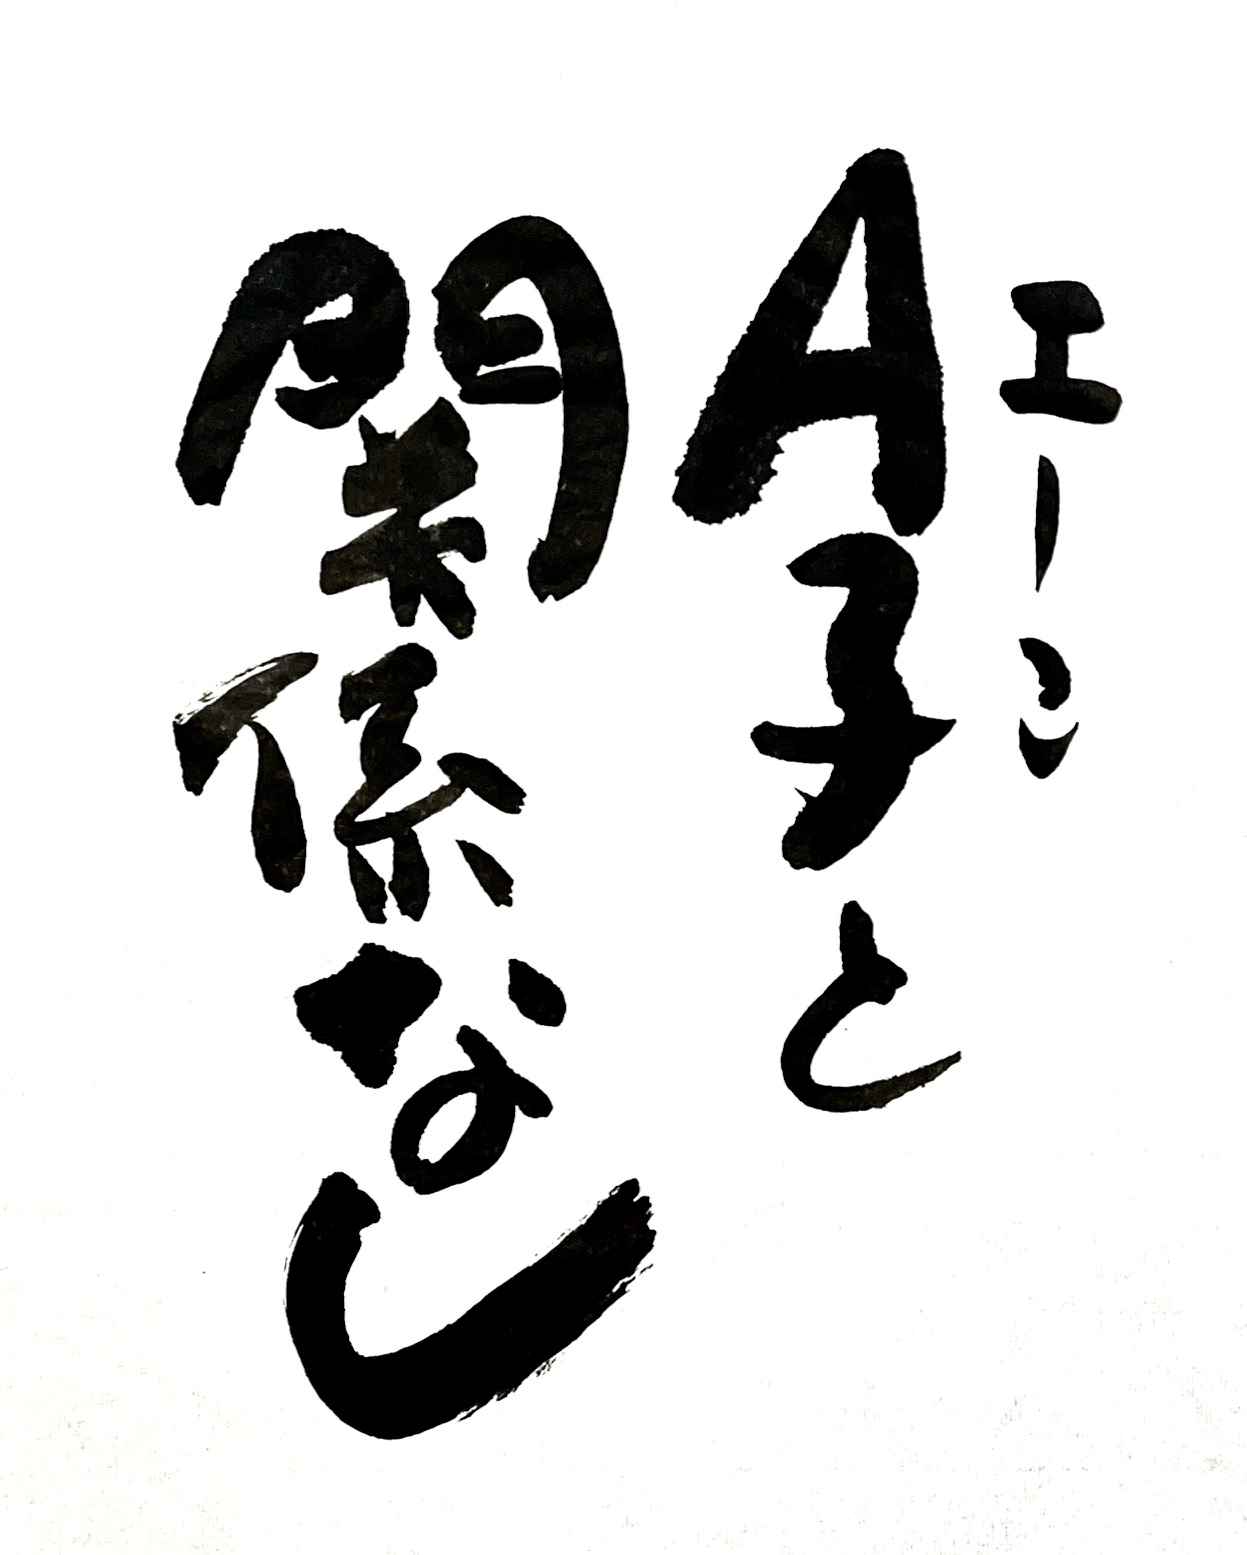 エーこ
A子と
関係なし